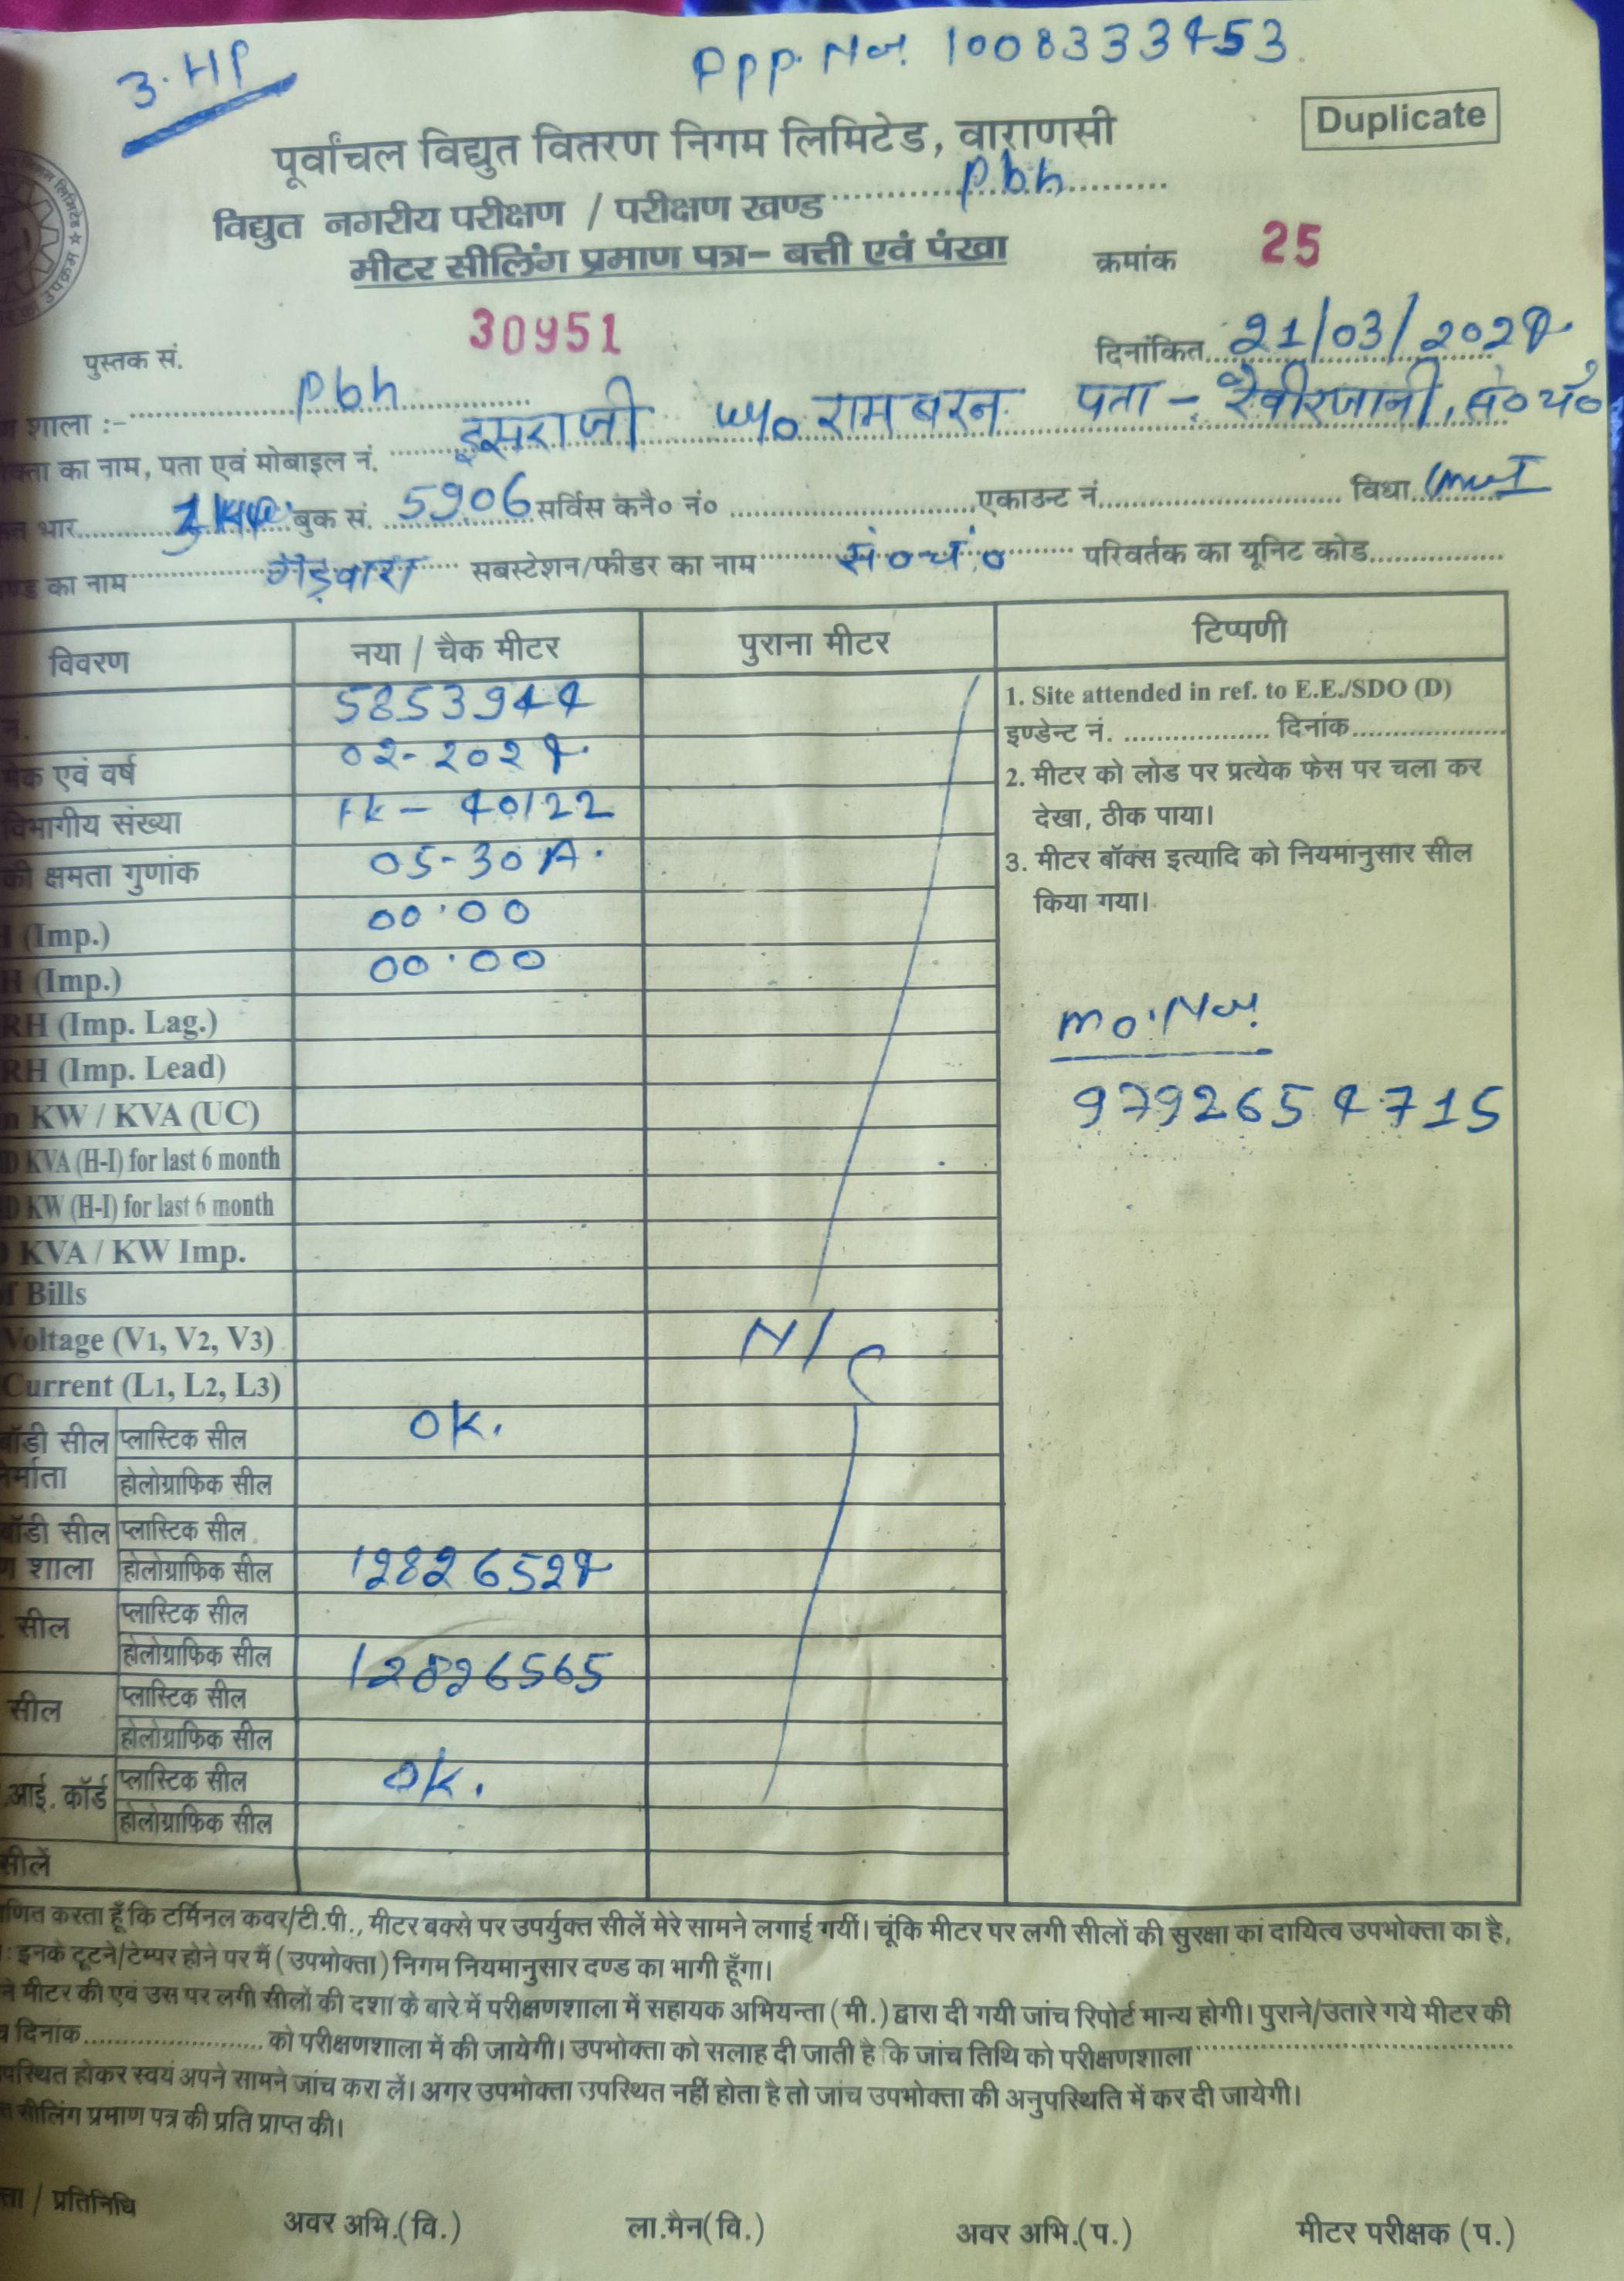 3. HP
Ppp. No. 1008333453
Duplicate
पूर्वांचल विद्युत वितरण निगम लिमिटेड, वाराणसी
विद्युत नगरीय परीक्षण / परीक्षण खण्ड Pbh
मीटर सीलिंग प्रमाण पत्र– बत्ती एवं पंखा
क्रमांक 25
पुस्तक सं. 30951
दिनांकित 21/03/2024
शाला :- Pbh
का नाम, पता एवं मोबाइल नं. इसराजी w/o रामबरन पता -
भार बुक सं. 5906 सर्विस कनै० नं० एकाउन्ट नं. विधा
का नाम सबस्टेशन/फीडर का नाम सं०चं० परिवर्तक का यूनिट कोड
विवरण नया / चैक मीटर पुराना मीटर टिप्पणी
5853944
एवं वर्ष 02-2024
विभागीय संख्या 40122
की क्षमता गुणांक 05-30 A.
(Imp.) 00.00
(Imp.) 00.00
RH (Imp. Lag.)
RH (Imp. Lead)
KW / KVA (UC)
KVA (H-I) for last 6 month
KW (H-I) for last 6 month
KVA / KW Imp.
Bills
Voltage (V1, V2, V3) N/C
Current (L1, L2, L3)
बॉडी सील प्लास्टिक सील OK.
होलोग्राफिक सील
बॉडी सील प्लास्टिक सील
शाला होलोग्राफिक सील 12826524
सील प्लास्टिक सील
होलोग्राफिक सील 12826565
सील प्लास्टिक सील
होलोग्राफिक सील
आई. कॉर्ड प्लास्टिक सील OK.
होलोग्राफिक सील
सीलें
1. Site attended in ref. to E.E./SDO (D)
इण्डेन्ट नं. दिनांक
2. मीटर को लोड पर प्रत्येक फेस पर चला कर
देखा, ठीक पाया।
3. मीटर बॉक्स इत्यादि को नियमांनुसार सील
किया गया।
mo. No.
9792654715
करता हूँ कि टर्मिनल कवर/टी.पी., मीटर बक्से पर उपर्युक्त सीलें मेरे सामने लगाई गयीं। चूंकि मीटर पर लगी सीलों की सुरक्षा का दायित्व उपभोक्ता का है,
इनके टूटने/टेम्पर होने पर मैं (उपभोक्ता) निगम नियमानुसार दण्ड का भागी हूँगा।
मीटर की एवं उस पर लगी सीलों की दशा के बारे में परीक्षणशाला में सहायक अभियन्ता (मी.) द्वारा दी गयी जांच रिपोर्ट मान्य होगी। पुराने/उतारे गये मीटर की
दिनांक को परीक्षणशाला में की जायेगी। उपभोक्ता को सलाह दी जाती है कि जांच तिथि को परीक्षणशाला
होकर स्वयं अपने सामने जांच करा लें। अगर उपभोक्ता उपस्थित नहीं होता है तो जांच उपभोक्ता की अनुपस्थिति में कर दी जायेगी।
सीलिंग प्रमाण पत्र की प्रति प्राप्त की।
/ प्रतिनिधि अवर अभि.(वि.) ला.मैन(वि.) अवर अभि.(प.) मीटर परीक्षक (प.)